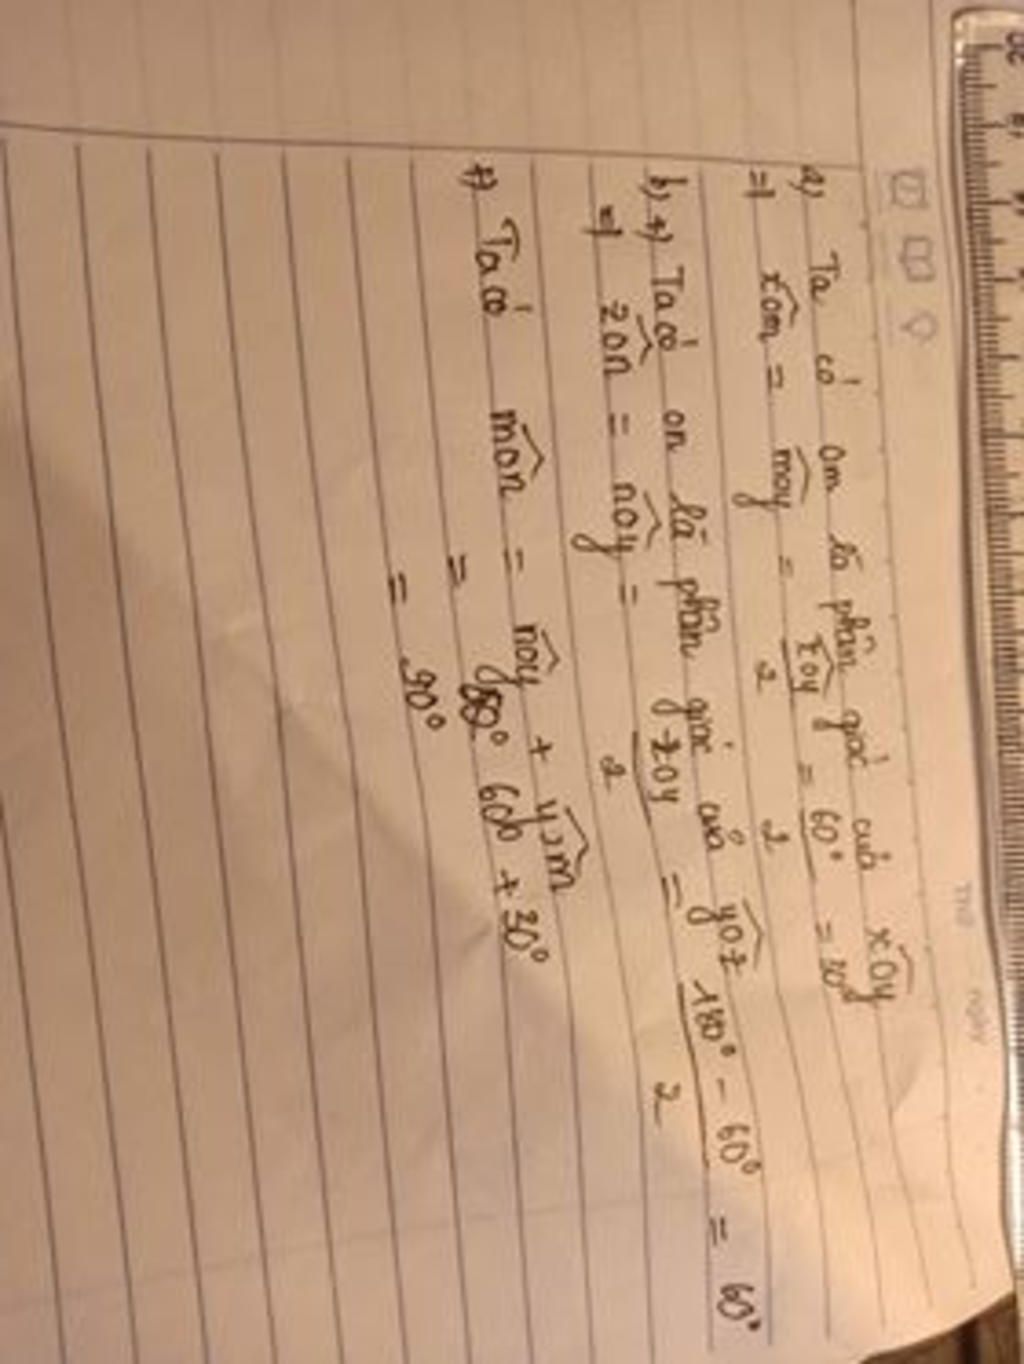 Thứ ngày
a) Ta có Om là phân giác của xOy
=) xOm = mOy = xOy/2 = 60°/2 = 30°
b) +) Ta có On là phân giác của yOz
=) zOn = nOy = zOy/2 = 180° - 60°/2 = 60°
+) Ta có mOn = nOy + yOm
= 60° + 30°
= 90°